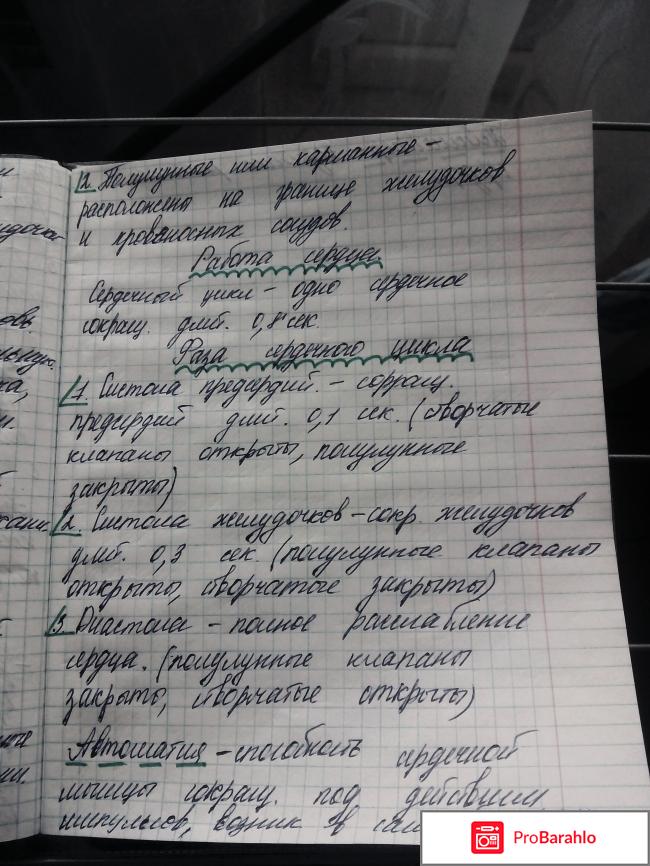 2. Полулунные или карманные -
расположены на границе желудочков
и кровяносных сосудов.
Работа сердца.
Сердечный цикл - одно сердечное
сокращ. длит. 0,8 сек.
Фаза сердечного цикла
1. Систола предсердий. - соркращ.
предсердий длит. 0,1 сек. (створчатые
клапаны открыты, полулунные
закрыты)
2. Систола желудочков - сокр. желудочков
длит. 0,3 сек (полулунные клапаны
открыто, створчатые закрыты)
3. Диастола - полное расслабление
сердца. (полулунные клапаны
закрыто, створчатые открыты)
Автоматия - способность сердечной
мышцы сокращ. под действием
импульсов, возник в
ProBarahlo